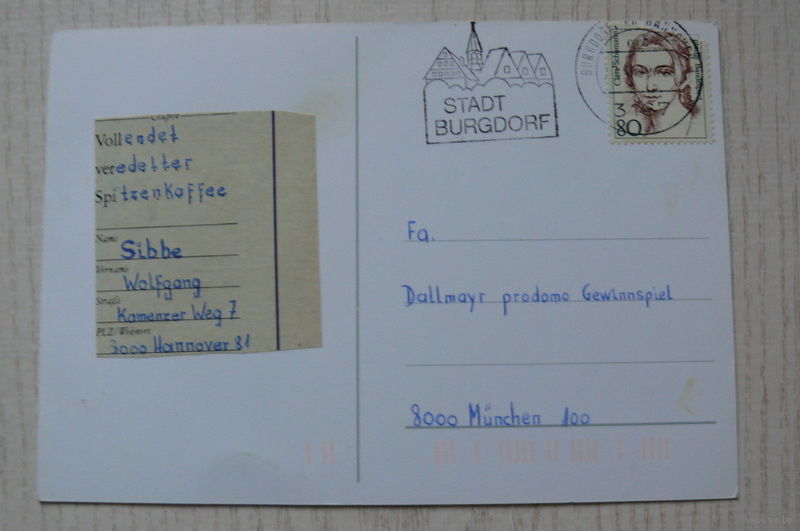 Coupon
Vollendet
veredelter
Spitzenkaffee
Name
Sibbe
Vorname
Wolfgang
Straße
Kamenzer Weg 7
PLZ/Wohnort
3000 Hannover 81
STADT
BURGDORF
Clara Schumann
80
Fa.
Dallmayr prodomo Gewinnspiel
8000 München 100